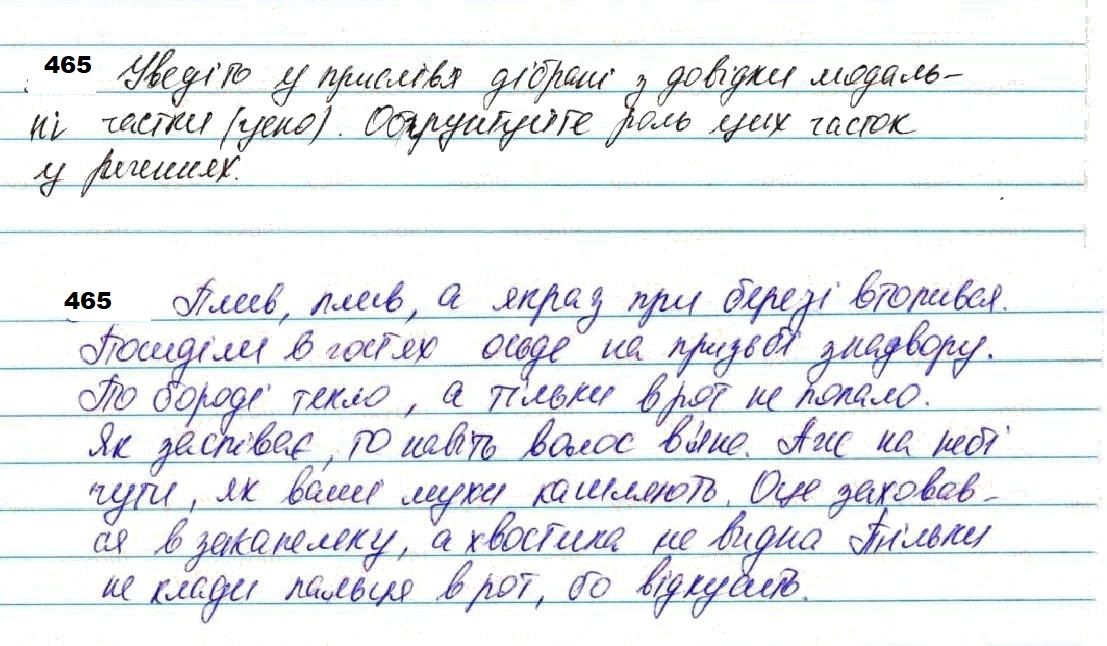 465 Уведіть у прислівя дібрані з довідки модаль-
ні частки (усно). Обґрунтуйте роль цих часток
у реченнях.
465 Плив, плив, а якраз при березі втопився.
Посиділи в гостях осьде на призьбі знадвору.
По бороді текло, а тільки в рот не попало.
Як заспіває, то навіть волос вяне. Аж на небі
чути, як ваші мухи кашляють. Оце заховав-
ся в закапелку, а хвостика не видна Тільки
не клади пальця в рот, бо відкусить.